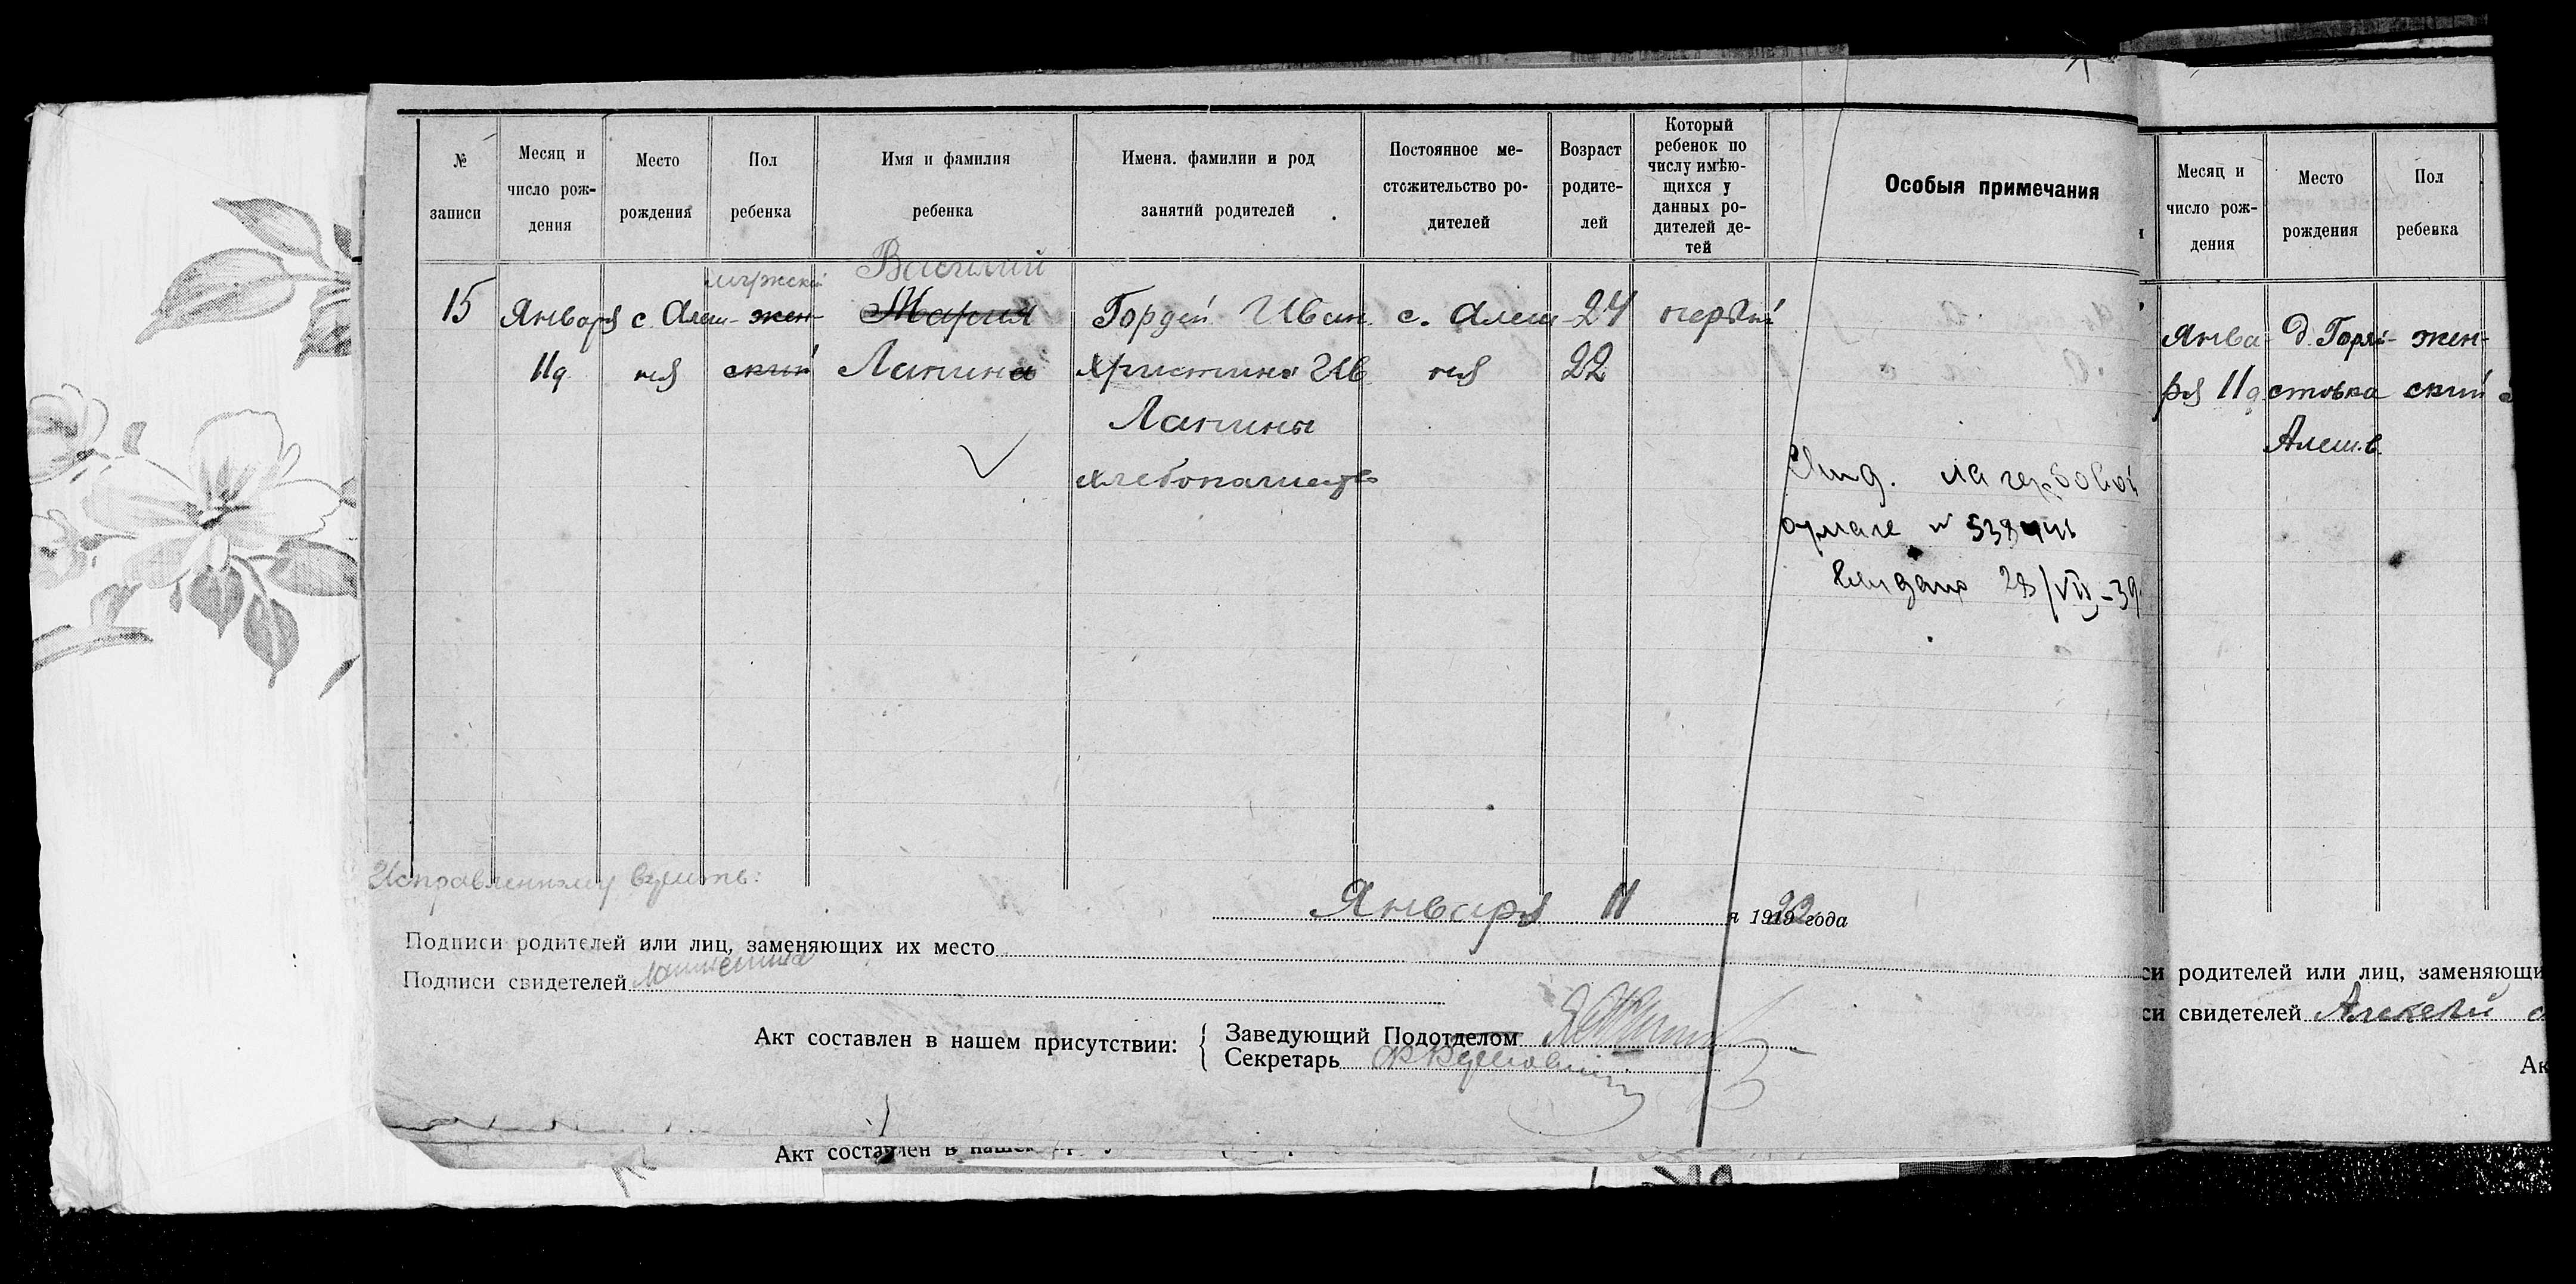 № записи
Месяц и число рож-дения
Место рождения
Пол ребенка
Имя и фамилия ребенка
Имена. фамилии и род занятий родителей
Постоянное ме-стожительство ро-дителей
Возраст родите-лей
Который ребенок по числу имѣю-щихся у данных ро-дителей де-тей
Особыя примечания
мужской Василий
15 Января с. Алеш- жен- Мария Гордей Иван. с. Алеш- 24 первый
11д. ня ский Лапина Христина Ив. ня 22
Лапины
хлебопашество
на гербовой
бумаге № 
выдано 28/VII-39
Исправленному верить:
Января 11 я 1922 года
Подписи родителей или лиц, заменяющих их место
Подписи свидетелей
Акт составлен в нашем присутствии: { Заведующий Подотделом
Секретарь
Акт составлен в
Месяц и число рож-дения
Место рождения
Пол ребенка
Янва- д. Горя- жен-
ря 11д. стовка ский
Алеш.в.
си родителей или лиц, заменяющи
си свидетелей Алексей
Ак